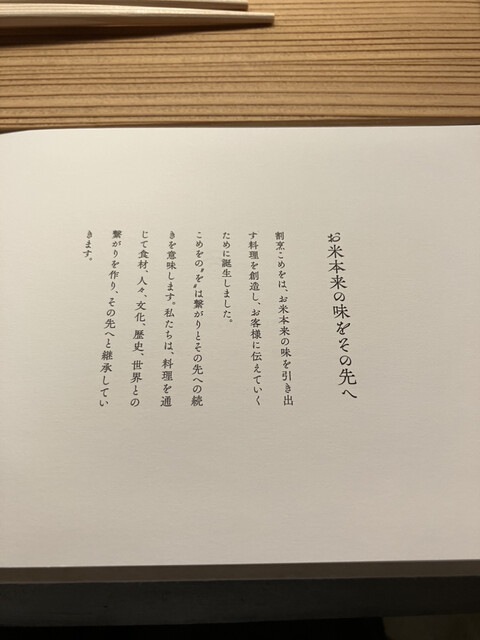 お米本来の味をその先へ
割烹こめをは、お米本来の味を引き出
す料理を創造し、お客様に伝えていく
ために誕生しました。
こめをの〝を〟は繋がりとその先への続
きを意味します。私たちは、料理を通
じて食材、人々、文化、歴史、世界との
繋がりを作り、その先へと継承してい
きます。